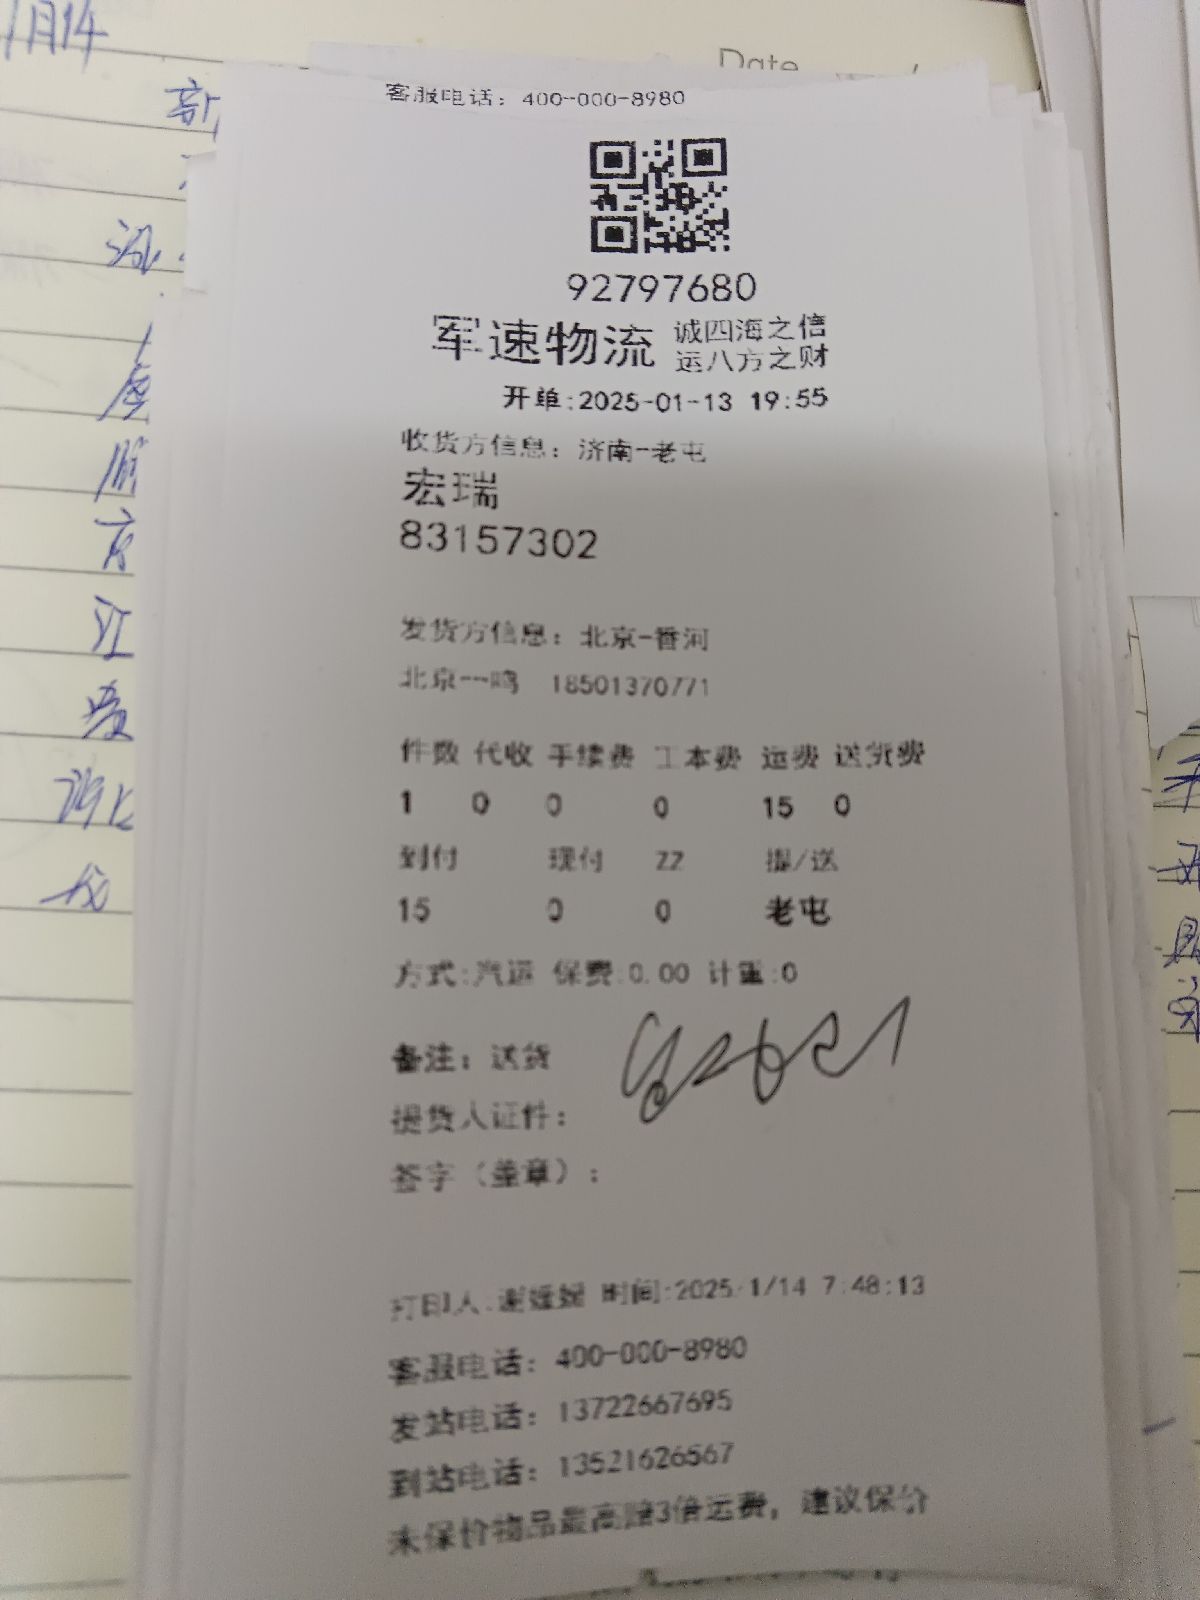 1月14
Date
客服电话：400-000-8980
92797680
军速物流 诚四海之信
运八方之财
开单:2025-01-13 19:55
收货方信息：济南-老屯
宏瑞
83157302
发货方信息：北京-香河
北京一鸣 18501370771
件数 代收 手续费 工本费 运费 送货费
1 0 0 0 15 0
到付 现付 ZZ 提/送
15 0 0 老屯
方式:汽运 保费:0.00 计重:0
备注：送货
提货人证件：
签字（盖章）：
打印人:谢媛媛 时间:2025/1/14 7:48:13
客服电话：400-000-8980
发站电话：13722667695
到站电话：13521626567
未保价物品最高赔3倍运费，建议保价